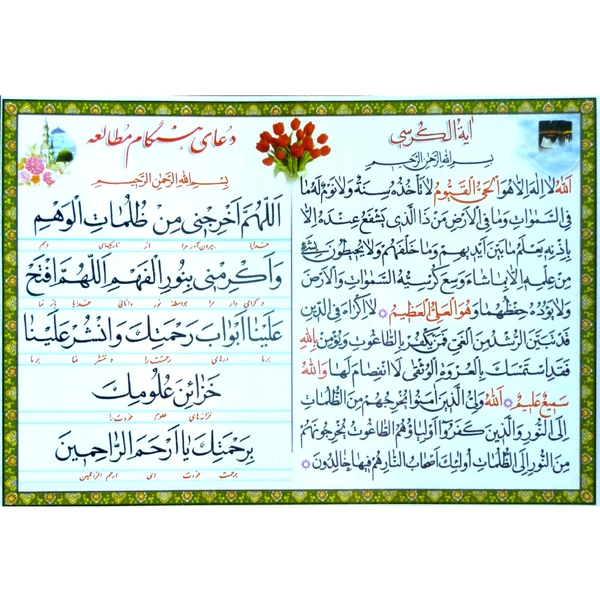 آیة الکرسی
بسم الله الرحمن الرحیم
اَللّٰهُ لا اِلٰهَ اِلّا هُوَ الْحَیُّ الْقَیُّومُ لا تَأْخُذُهُ سِنَةٌ وَلا نَوْمٌ لَهُ ما
فِی السَّمٰوٰاتِ وَ ما فِی الْاَرْضِ مَنْ ذَا الَّذی یَشْفَعُ عِنْدَهُ اِلّا
بِاِذْنِهِ یَعْلَمُ ما بَیْنَ اَیْدیهِمْ وَ ما خَلْفَهُمْ وَلا یُحیطُونَ بِشَیْءٍ
مِنْ عِلْمِهِ اِلّا بِما شاءَ وَسِعَ کُرْسِیُّهُ السَّمٰوٰاتِ وَالْاَرْضَ
وَلا یَؤُدُهُ حِفْظُهُما وَ هُوَ الْعَلِیُّ الْعَظیمُ لا اِکْراهَ فِی الدّینِ
قَدْ تَبَیَّنَ الرُّشْدُ مِنَ الْغَیِّ فَمَنْ یَکْفُرْ بِالطّاغُوتِ وَیُؤْمِنْ بِاللّٰهِ
فَقَدِ اسْتَمْسَکَ بِالْعُرْوَةِ الْوُثْقیٰ لَا انْفِصامَ لَها وَاللّٰهُ
سَمیعٌ عَلیمٌ اَللّٰهُ وَلِیُّ الَّذینَ آمَنُوا یُخْرِجُهُمْ مِنَ الظُّلُماتِ
اِلَی النُّورِ وَالَّذینَ کَفَرُوا اَوْلِیاؤُهُمُ الطّاغُوتُ یُخْرِجُونَهُمْ
مِنَ النُّورِ اِلَی الظُّلُماتِ اُولٰئِکَ اَصْحابُ النّارِ هُمْ فیها خالِدُونَ
دعای هنگام مطالعه
بسم الله الرحمن الرحیم
اَللّٰهُمَّ اَخْرِجْنی مِنْ ظُلُماتِ الْوَهْمِ
خدایا بیرون آور مرا از تاریکیهای وهم
وَ اَکْرِمْنی بِنُورِ الْفَهْمِ اَللّٰهُمَّ افْتَحْ
و گرامی دار مرا بواسطه نور دانائی خدایا باز نما
عَلَیْنا اَبْوابَ رَحْمَتِکَ وَانْشُرْ عَلَیْنا
بر ما درهای رحمتت را و منتشر نما بر ما
خَزائِنَ عُلُومِکَ
خزانه های علوم خودت را
بِرَحْمَتِکَ یا اَرْحَمَ الرّاحِمینَ
برحمت خودت ای ارحم الراحمین